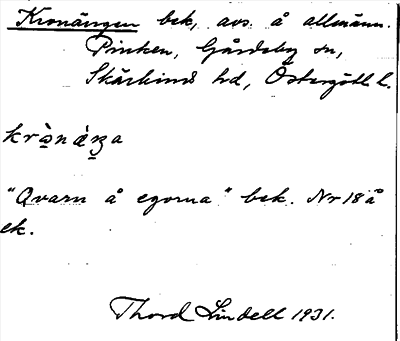 Kronängen bek, avs. å allmänn.
Pinken, Gårdeby sn,
Skärkinds hd, Östergötl l.
krònǽŋa
"Qvarn å egorna" bek. Nr 18 å
ek.
Thord Lindell 1931.